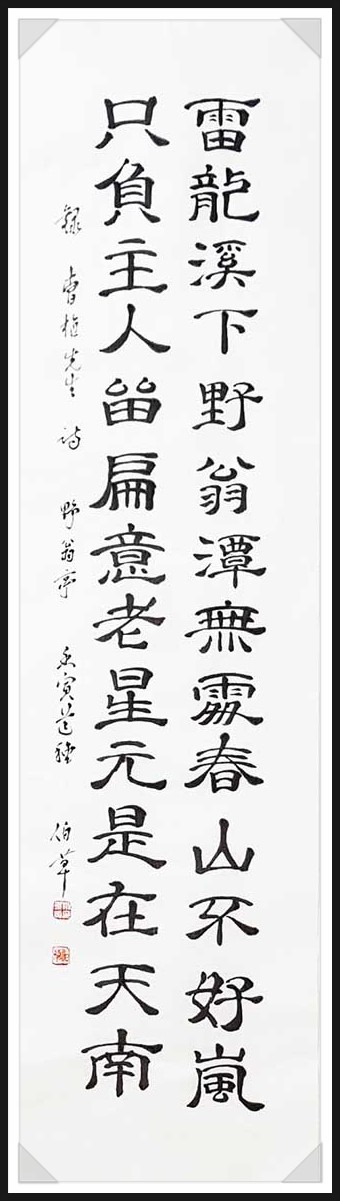 雷龍溪下野翁潭無霧春山不好嵐
只負主人畄扁意老星元是在天南
錄 曹植先生 詩 野翁亭 壬寅芒種 伯草